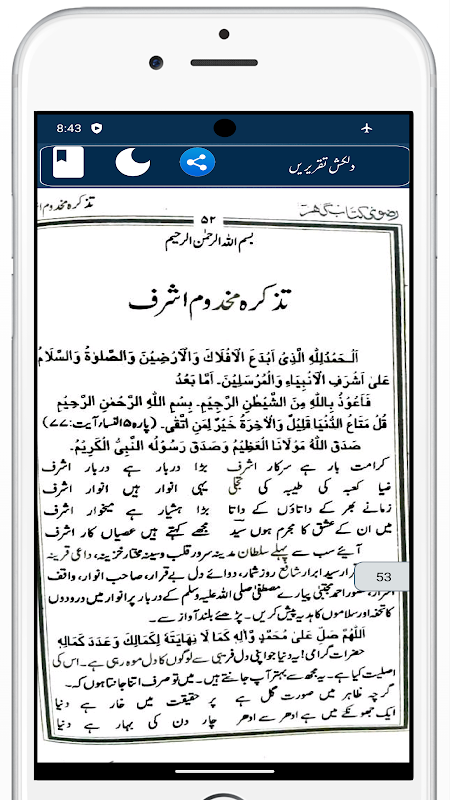 8:43
دلکش تقریریں
رضوی کتاب گھر
تذکرہ مخدوم ا
۵۲
بسم اللہ الرحمٰن الرحیم
تذکرہ مخدوم اشرف
اَلْحَمْدُلِلّٰہِ الَّذِیْ اَبْدَعَ الْاَفْلَاکَ وَالْاَرْضِیْنَ وَالصَّلٰوۃُ وَالسَّلَامُ
عَلٰی اَشْرَفِ الْاَنْبِیَاءِ وَالْمُرْسَلِیْنَ۔ اَمَّا بَعْدُ
فَاَعُوْذُ بِاللّٰہِ مِنَ الشَّیْطٰنِ الرَّجِیْمِ۔ بِسْمِ اللّٰہِ الرَّحْمٰنِ الرَّحِیْمِ
قُلْ مَتَاعُ الدُّنْیَا قَلِیْلٌ وَالْاٰخِرَۃُ خَیْرٌ لِمَنِ اتَّقٰی۔ (پارہ ۵ النساء آیت:۷۷)
صَدَقَ اللّٰہُ مَوْلَانَا الْعَظِیْمُ وَصَدَقَ رَسُوْلُہُ النَّبِیُّ الْکَرِیْمُ۔
کرامت بار ہے سرکار اشرف بڑا دربار ہے دربار اشرف
ضیا کعبہ کی طیبہ کی تجلی یہی انوار ہیں انوار اشرف
زمانے بھر کے داتاؤں کے داتا بڑا ہشیار ہے میخوار اشرف
میں ان کے عشق کا مجرم ہوں سیدؔ مجھے کہتے ہیں عصیاں کار اشرف
آیئے سب سے پہلے سلطان مدینہ سرور قلب وسینہ مختار خزینہ، داعی قرینہ
سید ابرار شافع روز شمار، دوائے دل بے قرار، صاحب انوار، واقف
53
حضور احمد مجتبیٰ پیارے مصطفیٰ صلی اللہ علیہ وسلم کے دربار پر انوار میں درودوں
کا تحفہ اور سلاموں کا ہدیہ پیش کریں۔ پڑھئے بلند آواز سے۔
اَللّٰھُمَّ صَلِّ عَلٰی مُحَمَّدٍ وَّاٰلِہٖ کَمَا لَا نِھَایَۃَ لِکَمَالِکَ وَعَدَدَ کَمَالِہٖ
حضرات گرامی! یہ دنیا جو اپنی دل فریبی سے لوگوں کا دل موہ رہی ہے۔ اس کی
اصلیت کیا ہے۔ یہ مجھ سے بہتر آپ جانتے ہیں۔ میں تو صرف اتنا جانتا ہوں کہ۔
گرچہ ظاہر میں صورت گل ہے پر حقیقت میں خار ہے دنیا
ایک جھونکے میں ہے ادھر سے ادھر چار دن کی بہار ہے دنیا